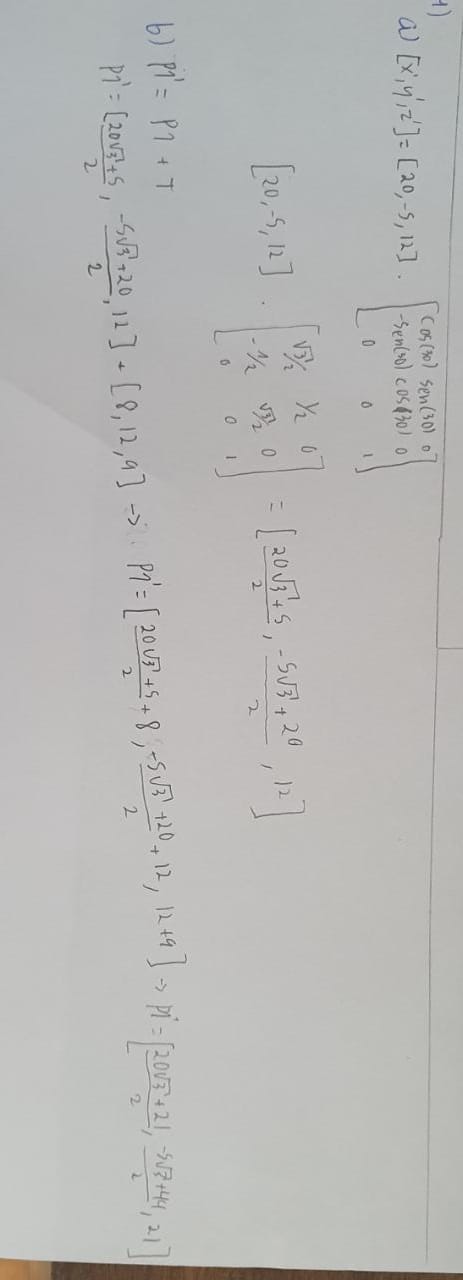 1)
a) [x',y',z'] = [20,-5,12] . [cos(30) sen(30) 0
-sen(30) cos(30) 0
0 0 1]
[20,-5,12] . [√3/2 1/2 0
-1/2 √3/2 0
0 0 1] = [20√3+5/2, -5√3+20/2, 12]
b) P1' = P1 + T
P1' = [20√3+5/2, -5√3+20/2, 12] + [8,12,9] → P1' = [20√3+5/2 + 8, -5√3+20/2 + 12, 12+9] → P1' = [20√3+21/2, -5√3+44/2, 21]